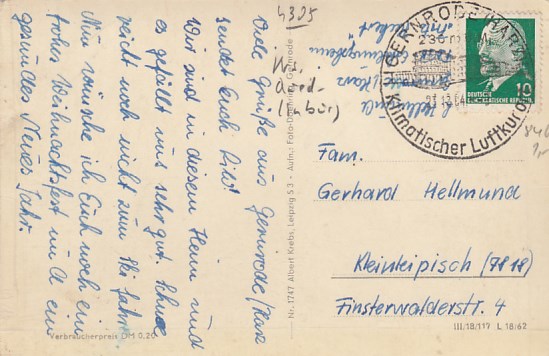 4305
Viele Grüße aus Gernrode/Harz
sendet Euch
Wir sind in diesem Heim und
es gefällt uns sehr gut. Schnee
reicht noch nicht zum Ski fahren.
Nun wünsche ich Euch noch ein
frohes Weihnachtsfest und ein
gesundes Neues Jahr.
Verbraucherpreis DM 0,20
Nr. 1747 Albert Krebs, Leipzig S 3 - Aufn.: Foto-Döhring, Gernrode
GERNRODE (HARZ)
Klimatischer Luftkurort
DEUTSCHE
DEMOKRATISCHE REPUBLIK
10
Fam.
Gerhard Hellmund
Kleinleipisch (7818)
Finsterwalderstr. 4
III/18/117 L 18/62